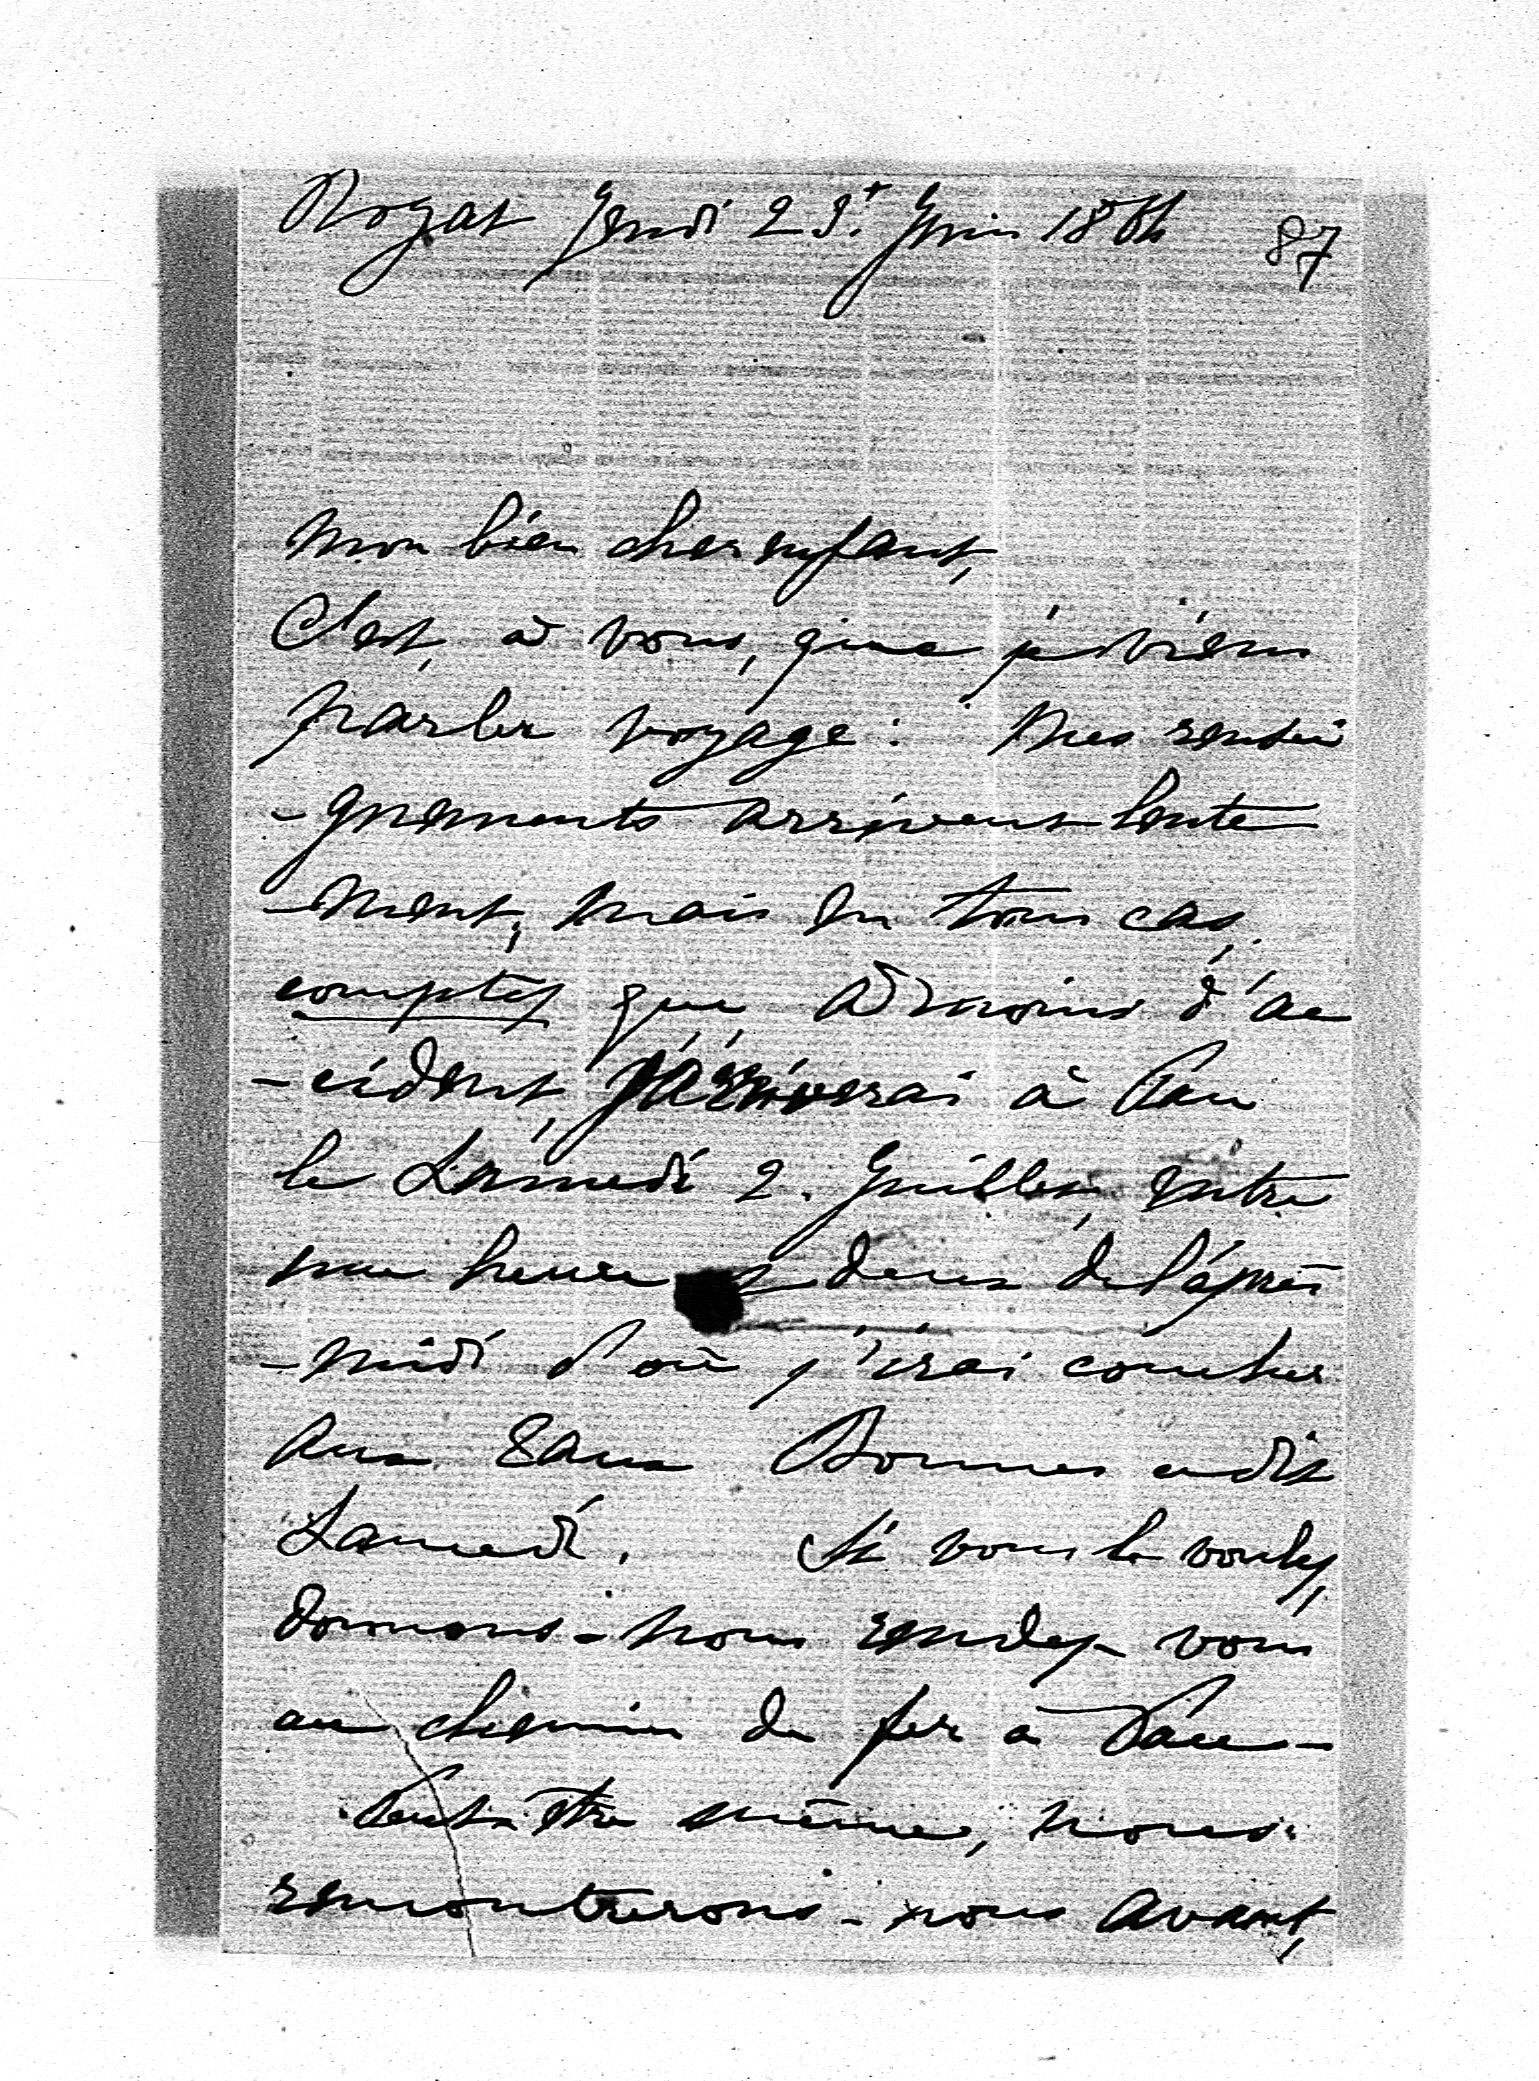 Royat Jeudi 23. Juin 1864 87
Mon bien cher enfant,
C'est, à vous, que je viens
parler voyage : Mes rensei
-gnements arrivent lente
-ment, mais en tous cas,
comptez que à moins d'ac
-cident, j'arriverai à Pau
le Samedi 2. Juillet, entre
une heure et deux de l'après
-midi d'où j'irai coucher
aux Eaux Bonnes cedit
Samedi. Si vous le voulez,
donnons-nous rendez-vous
au chemin de fer à Pau -
Peut-être même, nous
rencontrerons-nous avant,